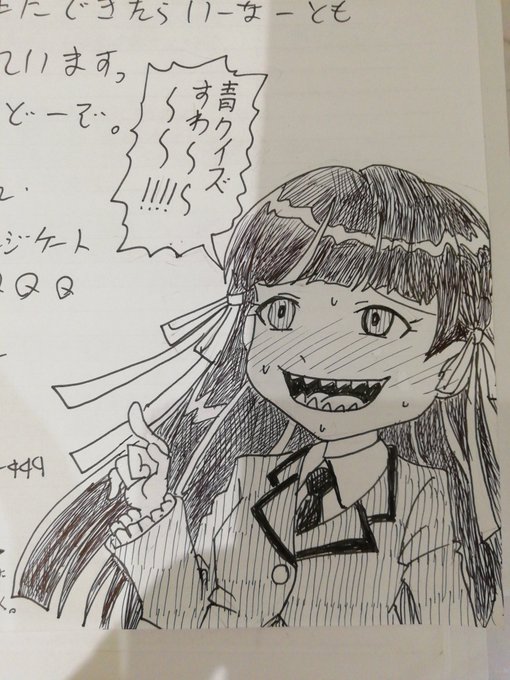 またできたらいーなーとも
ています。
どーぞ。
ジケート
QQ
青クイズ
すわ〜〜〜
〜〜!!!!